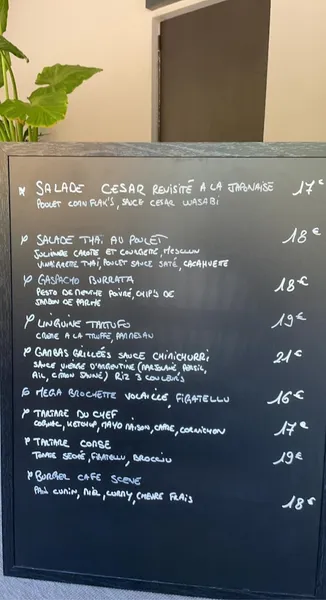 * SALADE CESAR REVISITÉ A LA JAPONAISE 17€
POULET CORN FLAK'S, SAUCE CESAR WASABI
* SALADE THAÏ AU POULET 18€
JULIENNE CAROTTE ET COURGETTE, MESCLUN
VINAIGRETTE THAÏ, POULET SAUCE SATÉ, CACAHUETE
* GASPACHO BURRATA 18€
PESTO DE MENTHE POIVRÉ, CHIPS DE
JAMBON DE PARME
* LINGUINE TARTUFO 19€
CREME A LA TRUFFE, PARMESAN
* GAMBAS GRILLÉES SAUCE CHIMICHURRI 21€
SAUCE VIERGE D'ARGENTINE (MARJOLAINE PERSIL,
AIL, CITRON JAUNE) RIZ 3 COULEURS
* MEGA BROCHETTE VOLAILLE, FIGATELLU 16€
* TARTARE DU CHEF 17€
COGNAC, KETCHUP, MAYO MAISON, CAPRE, CORNICHON
* TARTARE CORSE 19€
TOMATE SECHÉE, FIGATELLU, BROCCIU
* BURGER CAFE SCENE
PAIN CUMIN, MIEL, CURRY, CHEVRE FRAIS 18€